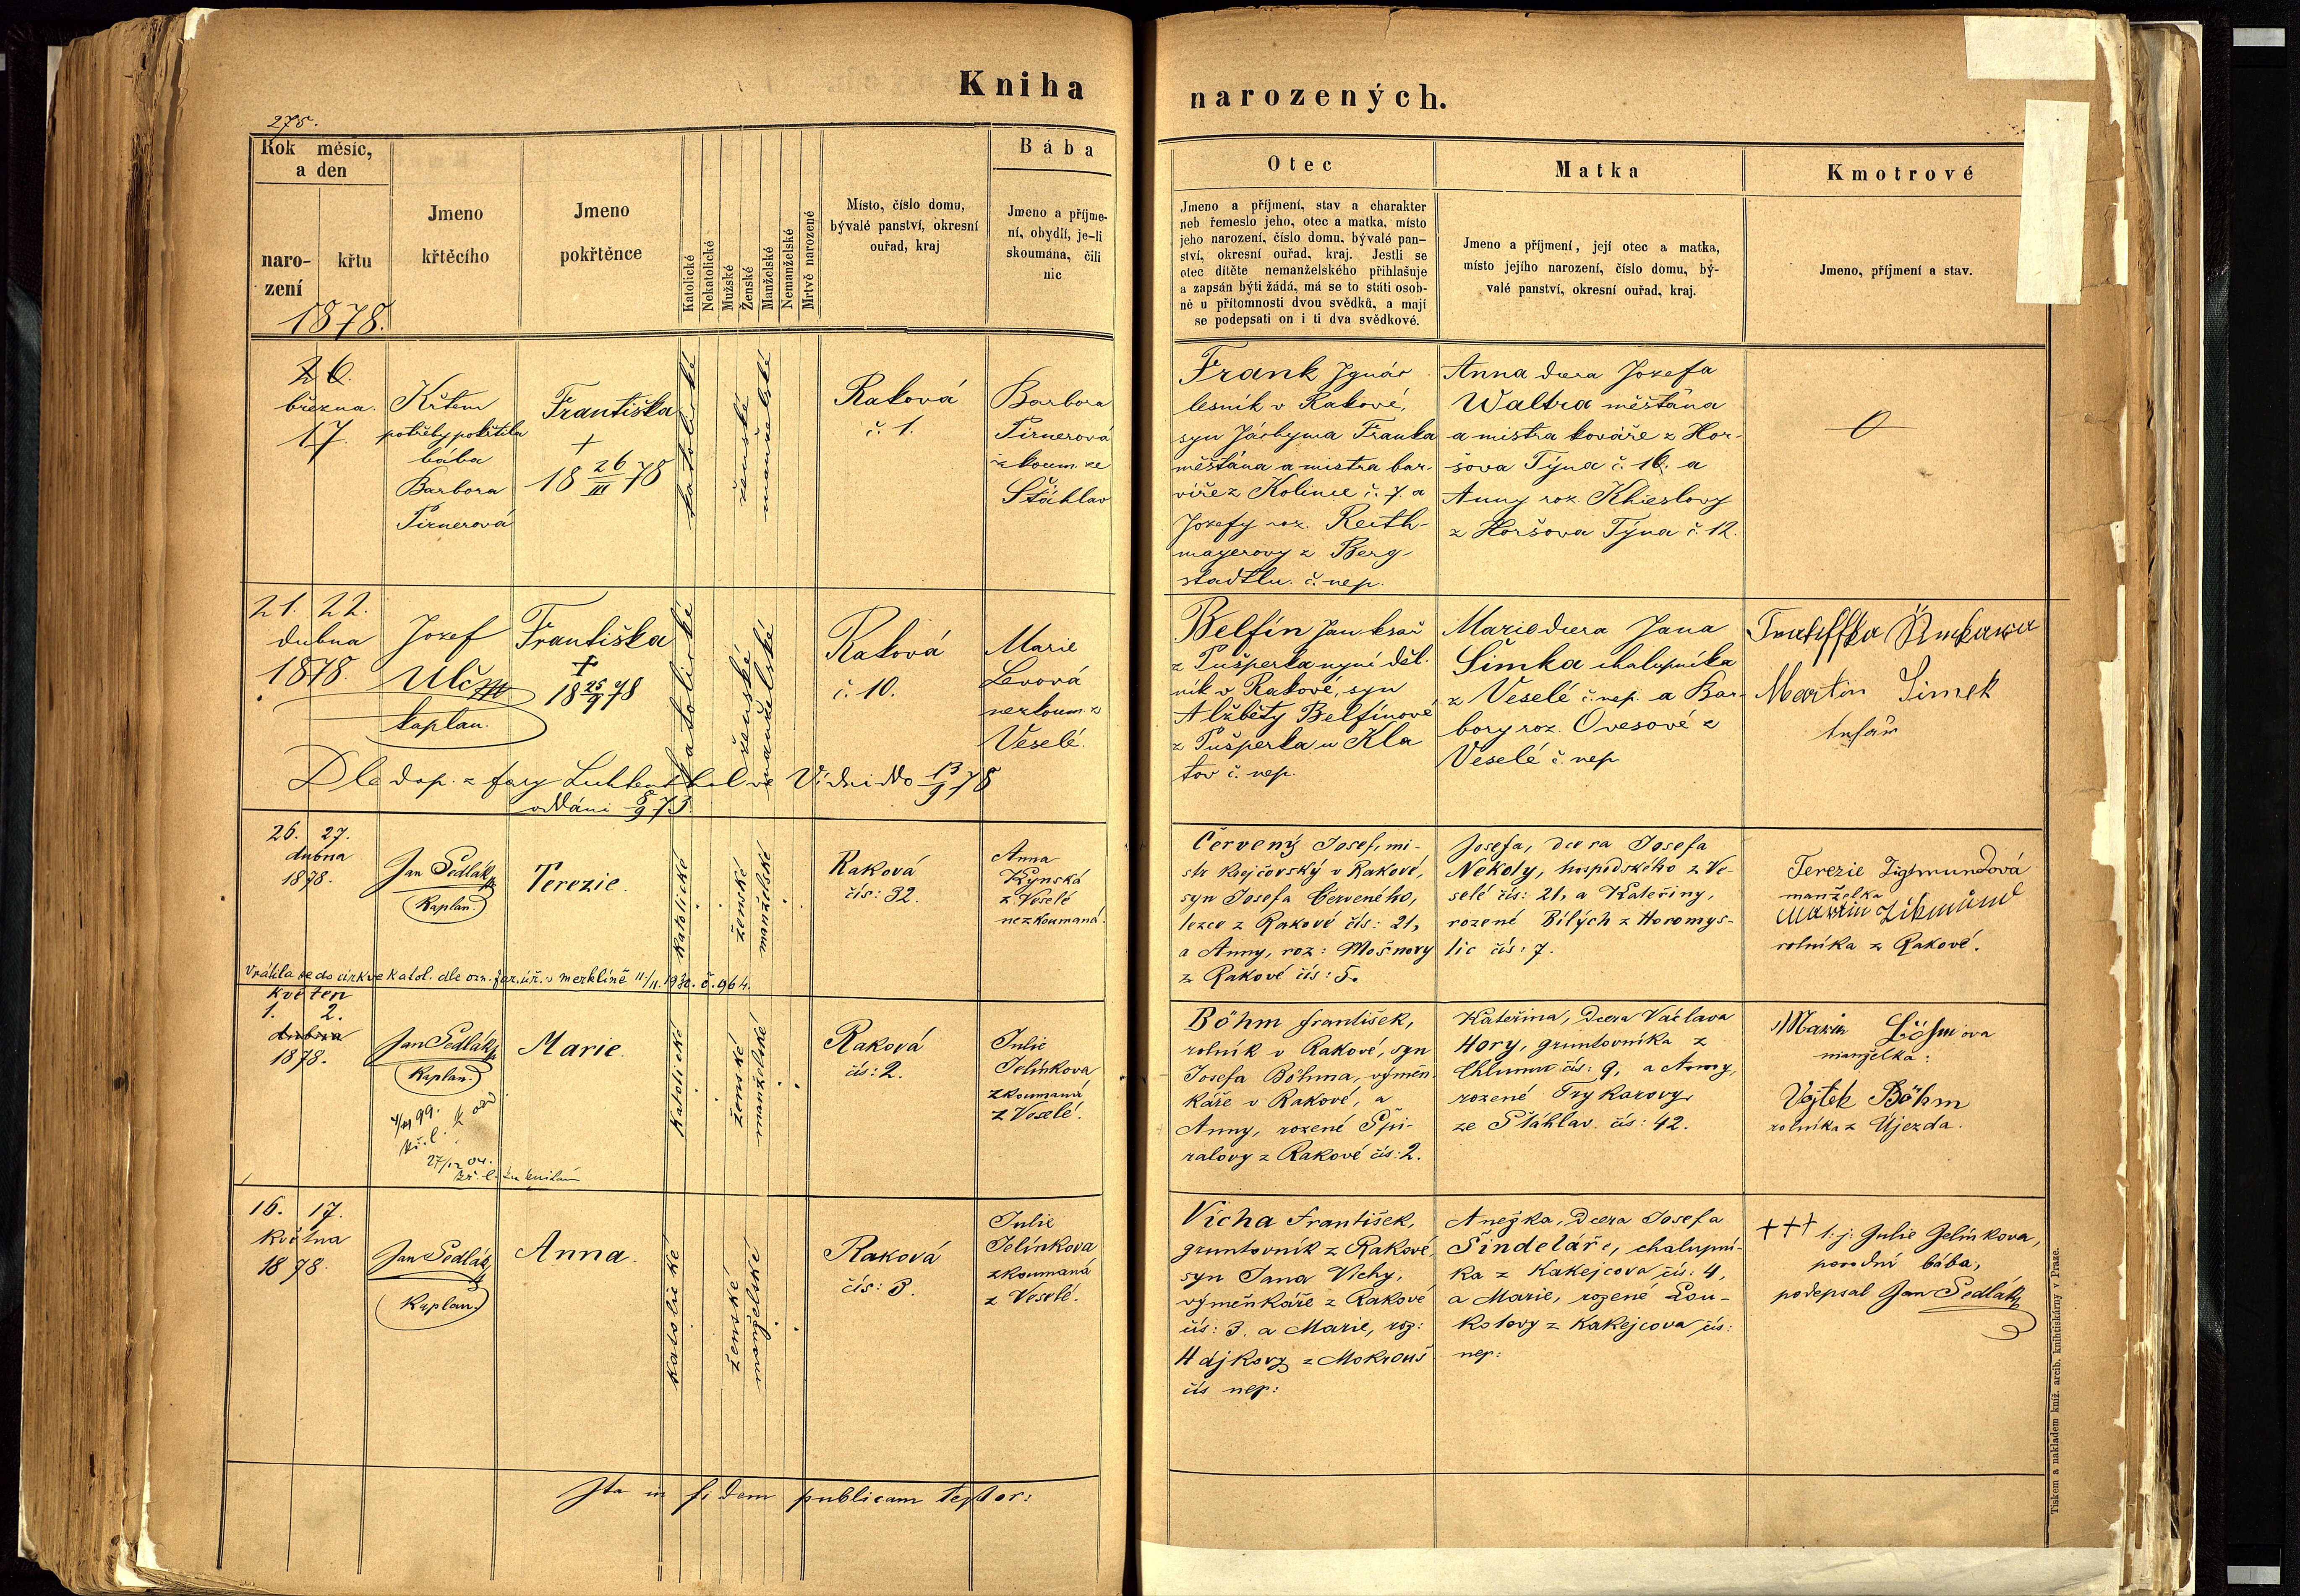 Kniha
narozených.
275.
Rok měsíc,
a den
naro-
zení
křtu
1878.
Jmeno
křtěcího
Jmeno
pokřtěnce
Katolické
Nekatolické
Mužské
Ženské
Manželské
Nemanželské
Mrtvě narozené
Místo, číslo domu,
bývalé panství, okresní
ouřad, kraj
Bába
Jmeno a příjme-
ní, obydlí, je-li
skoumána, čili
nic
Otec
Jmeno a příjmení, stav a charakter
neb řemeslo jeho, otec a matka, místo
jeho narození, číslo domu, bývalé pan-
ství, okresní ouřad, kraj. Jestli se
otec dítěte nemanželského přihlašuje
a zapsán býti žádá, má se to státi osob-
ně u přítomnosti dvou svědků, a mají
se podepsati on i ti dva svědkové.
Matka
Jmeno a příjmení, její otec a matka,
místo jejího narození, číslo domu, bý-
valé panství, okresní ouřad, kraj.
Kmotrové
Jmeno, příjmení a stav.
26.
března.
17.
Křtem
potřeby pokřtila
bába
Barbora
Pirnerová
Františka
+
18 26/III 78
katolické
ženské
manželské
Raková
č. 1.
Barbora
Pirnerová
zkoum. ze
Štáhlav
Frank Ignác
lesník v Rakové,
syn Jáchyma Franka
měšťána a mistra bar-
víře z Kolince č. 7. a
Josefy roz. Reith-
mayerovy z Berg-
stadtlu. č. nep.
Anna dcera Josefa
Waltra měšťána
a mistra kováře z Hor-
šova Týna č. 16. a
Anny roz. Khieslovy
z Horšova Týna č. 12.
21. 22.
dubna
1878.
Josef
Ulč
kaplan.
Františka
+
18 25/9 78
katolické
ženské
manželské
Raková
č. 10.
Marie
Levová
nezkoum. z
Veselé.
Dle dop. z fary ve Vídni ddo 13/9 78
oddáni 8/9 73.
Belfín Jan
z Pušperka nyní děl-
ník v Rakové, syn
Alžběty Belfínové
z Pušperka u Kla
tov č. nep.
Marie dcera Jana
Šimka chalupníka
z Veselé č. nep. a Bar-
bory roz. Ovesové z
Veselé č. nep
Martin Šimek
26. 27.
dubna
1878.
Jan Sedlák
Kaplan.
Terezie.
Katolické
ženské
manželské
Raková
čís: 32.
Anna
Kynská
z Veselé
nezkoumaná.
Vrátila se do církve katol. dle ozn. far. úř. v Merklíně 11/11. 1930. č. 964.
Červený Josef, mi-
str krejčovský v Rakové,
syn Josefa Červeného,
tezce z Rakové čís: 21,
a Anny, roz: Mošnovy
z Rakové čís: 5.
Josefa, dcera Josefa
Nekoly, hospodského z Ve-
selé čís: 21, a Kateřiny,
rozené Bílých z Horomys-
lic čís: 7.
Terezie Zigmundová
manželka
Martin Zikmund
rolníka z Rakové.
květen
1. 2.
dubna
1878.
Jan Sedlák
Kaplan.
4/11 99.
kř. l.
27/12 04.
kř. l.
Marie.
Katolické
ženské
manželské
Raková
čís: 2.
Julie
Jelínkova
zkoumaná
z Veselé.
Böhm František,
rolník v Rakové, syn
Josefa Böhma, výměn-
káře v Rakové, a
Anny, rozené Špi-
ralovy z Rakové čís: 2.
Kateřina, dcera Václava
Hory, gruntovníka z
Chlumu čís: 9, a Anny,
rozené Trykarovy
ze Štáhlav. čís: 42.
Marie Böhmova
manželka:
Vojtek Böhm
rolníka z Újezda.
16. 17.
Května
1878.
Jan Sedlák
Kaplan.
Anna.
Katolické
ženské
manželské
Raková
čís: 3.
Julie
Jelínkova
zkoumaná
z Veselé.
Vícha František,
gruntovník z Rakové,
syn Jana Víchy,
výměnkáře z Rakové
čís: 3. a Marie, roz:
Hájkovy z Mokrouš
čís nep:
Anežka, dcera Josefa
Šindeláře, chalupní-
ka z Kakejcova čís: 4,
a Marie, rozené Lou-
kotovy z Kakejcova čís:
nep:
+++ l: j: Julie Jelínkova,
porodní bába,
podepsal Jan Sedlák
Ita in fidem publicam testor:
Tiskem a nákladem kníž. arcib. knihtiskárny v Praze.